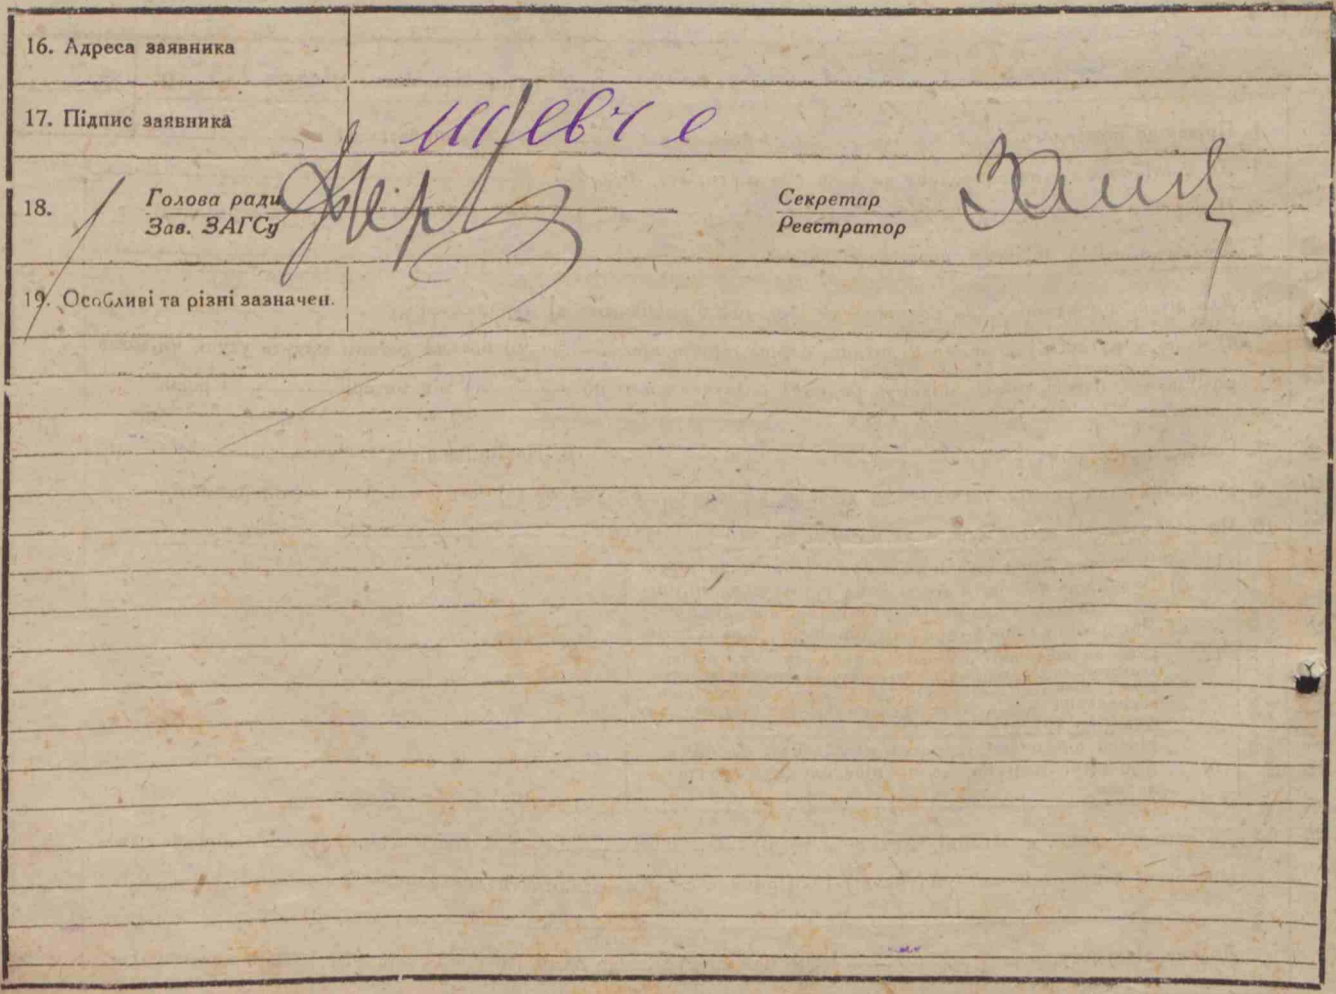 16. Адреса заявника
17. Підпис заявника Шевч е
18. Голова ради Секретар
Зав. ЗАГСу Реєстратор
19. Особливі та різні зазначен.